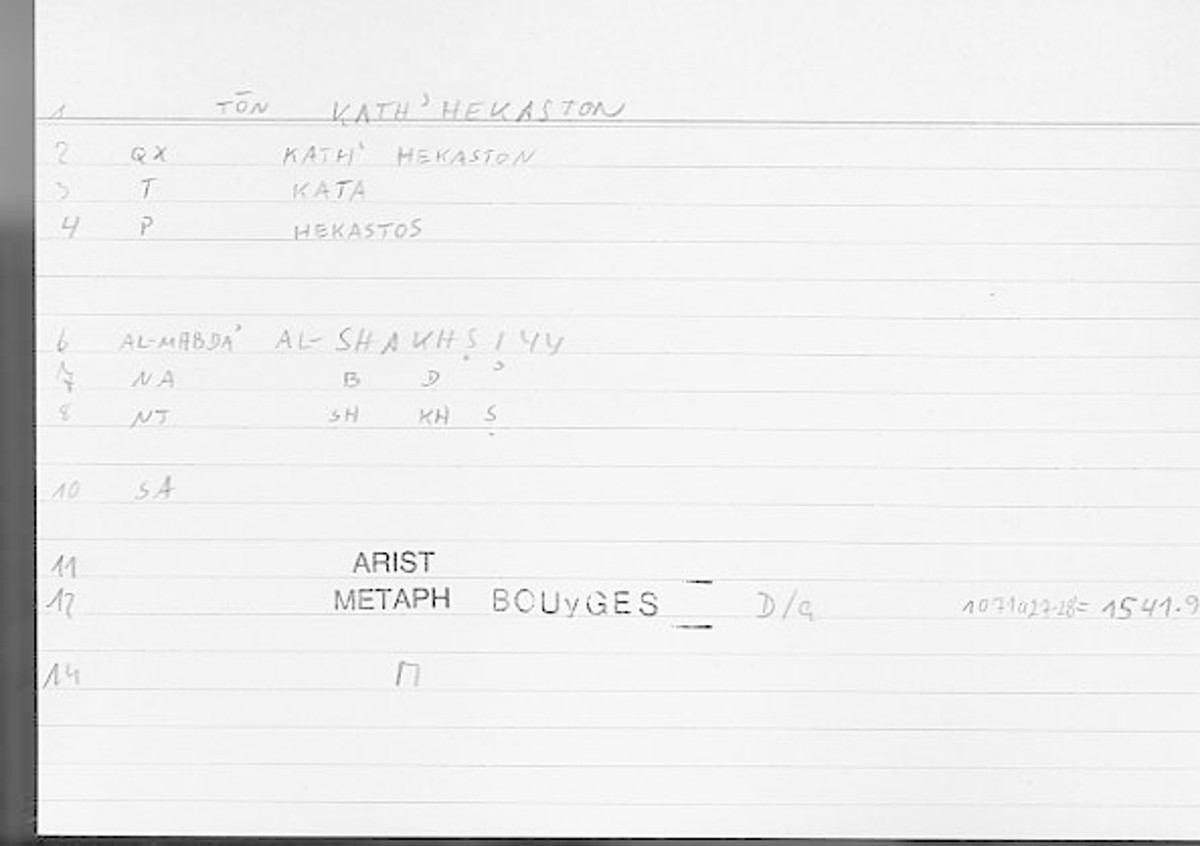 1 TŌN KATH' HEKASTON
2 QX KATH' HEKASTON
3 T KATA
4 P HEKASTOS
6 AL-MABDA' AL-SHAKHṢIYY
7 NA B D '
8 NT SH KH Ṣ
10 SA
11 ARIST
12 METAPH BOUyGES D/a 1071a27-28= 1541.9
14 Π